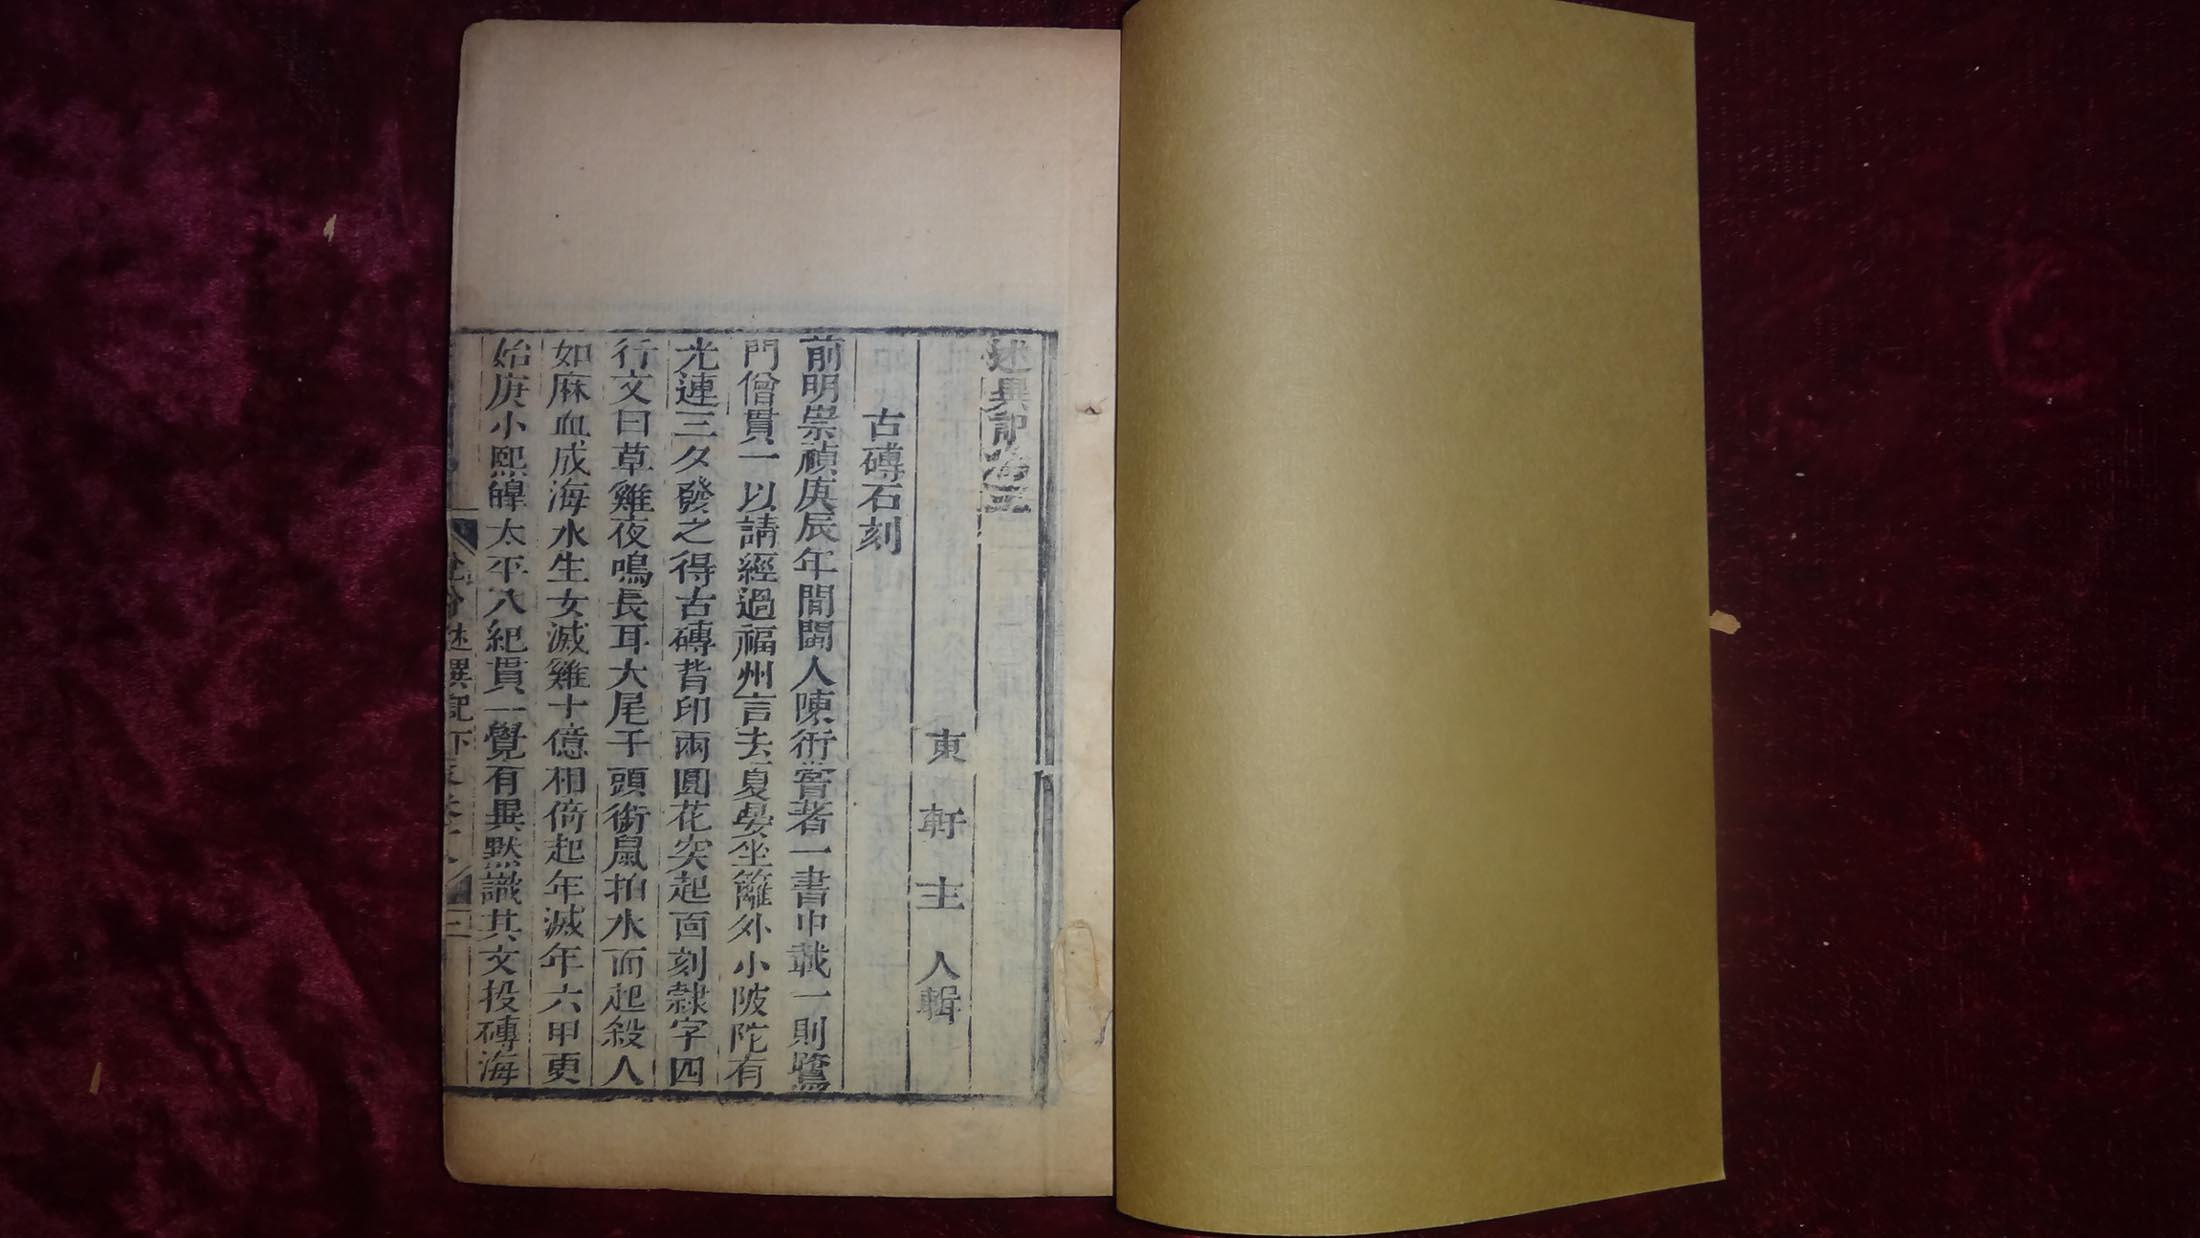 述異記卷三
東軒主人輯
古磚石刻
前明崇禎庚辰年閒閩人陳衎嘗著一書中載一則鷺
門僧貫一以請經過福州言去夏晏坐籬外小陂陀有
光連三夕發之得古磚背印兩圓花突起面刻隸字四
行文曰草雞夜鳴長耳大尾干頭銜鼠拍水而起殺人
如麻血成海水生女滅雞十億相倚起年滅年六甲更
始庚小熙皥太平八紀貫一覺有異默識其文投磚海
述異記下